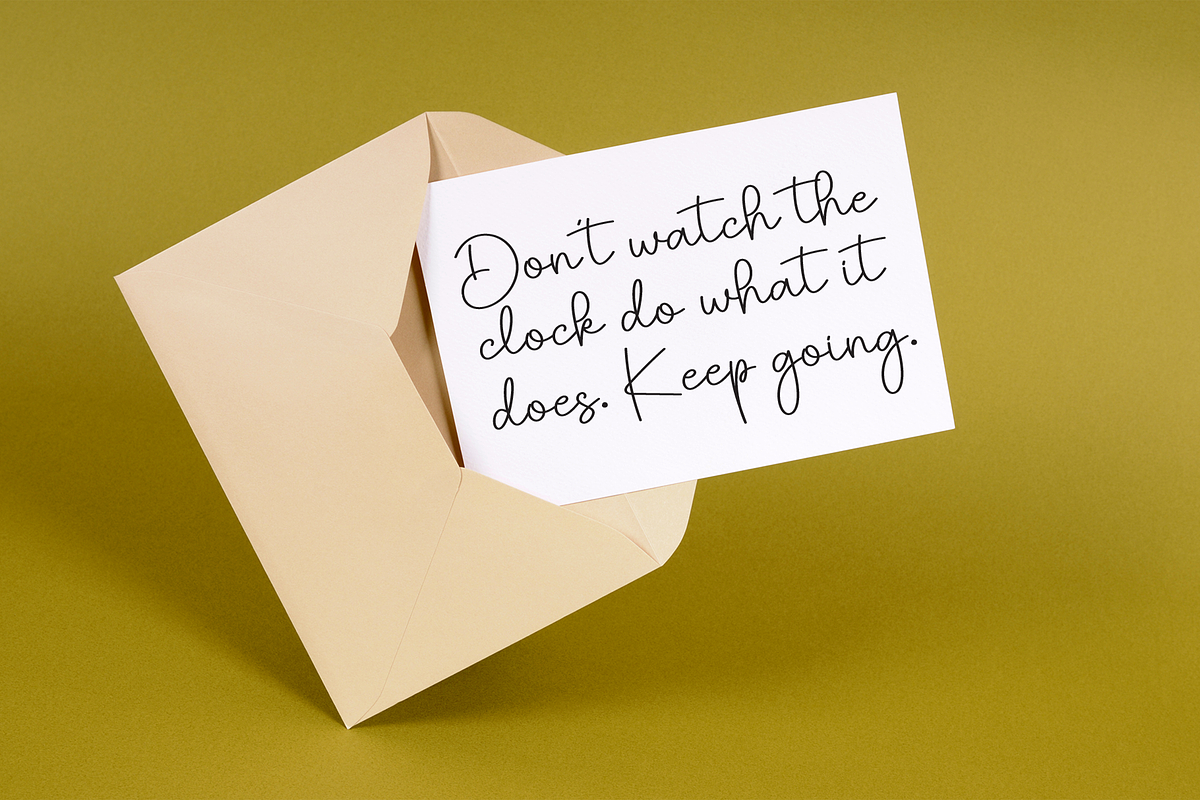 Don't watch the
clock do what it
does. Keep going.